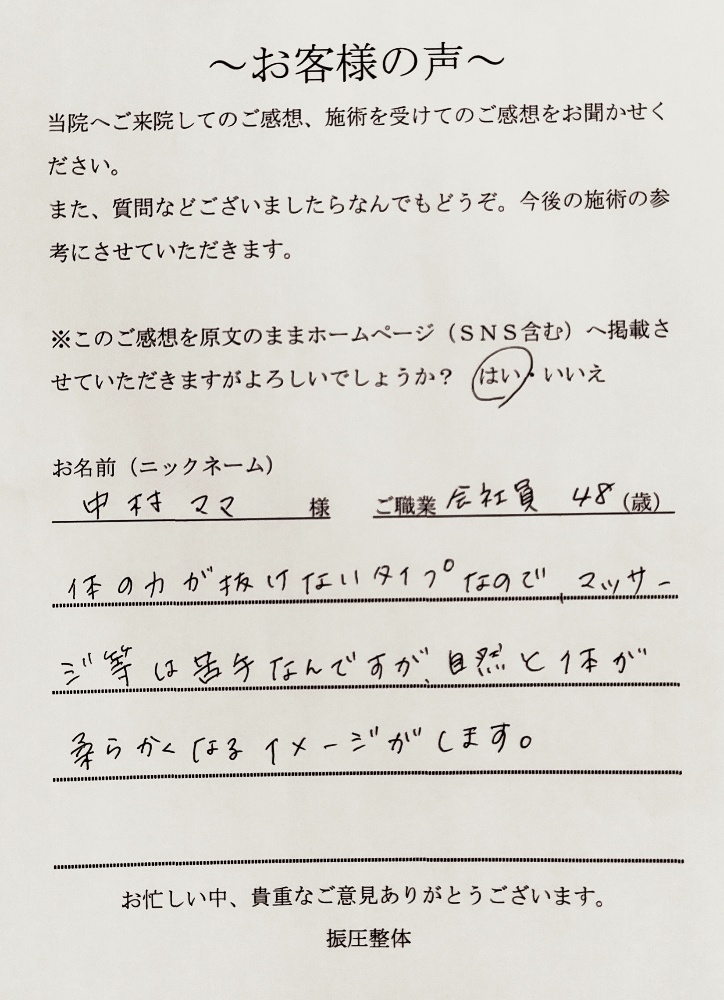 ～お客様の声～
当院へご来院してのご感想、施術を受けてのご感想をお聞かせく
ださい。
また、質問などございましたらなんでもどうぞ。今後の施術の参
考にさせていただきます。
※このご感想を原文のままホームページ（ＳＮＳ含む）へ掲載さ
せていただきますがよろしいでしょうか？　はい・いいえ
お名前（ニックネーム）
中村ママ　様　ご職業 会社員　48（歳）
体の力が抜けないタイプなので、マッサー
ジ等は苦手なんですが、自然と体が
柔らかくなるイメージがします。
お忙しい中、貴重なご意見ありがとうございます。
振圧整体